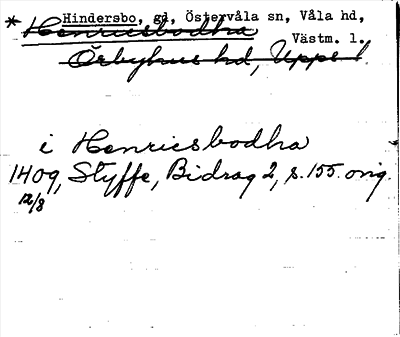 Hindersbo, gd, Östervåla sn, Våla hd,
* Henricsbodha Västm. l.
Örbyhus hd, Upps l.
i Henricsbodha
1409, Styffe, Bidrag 2, s. 155. orig.
12/8